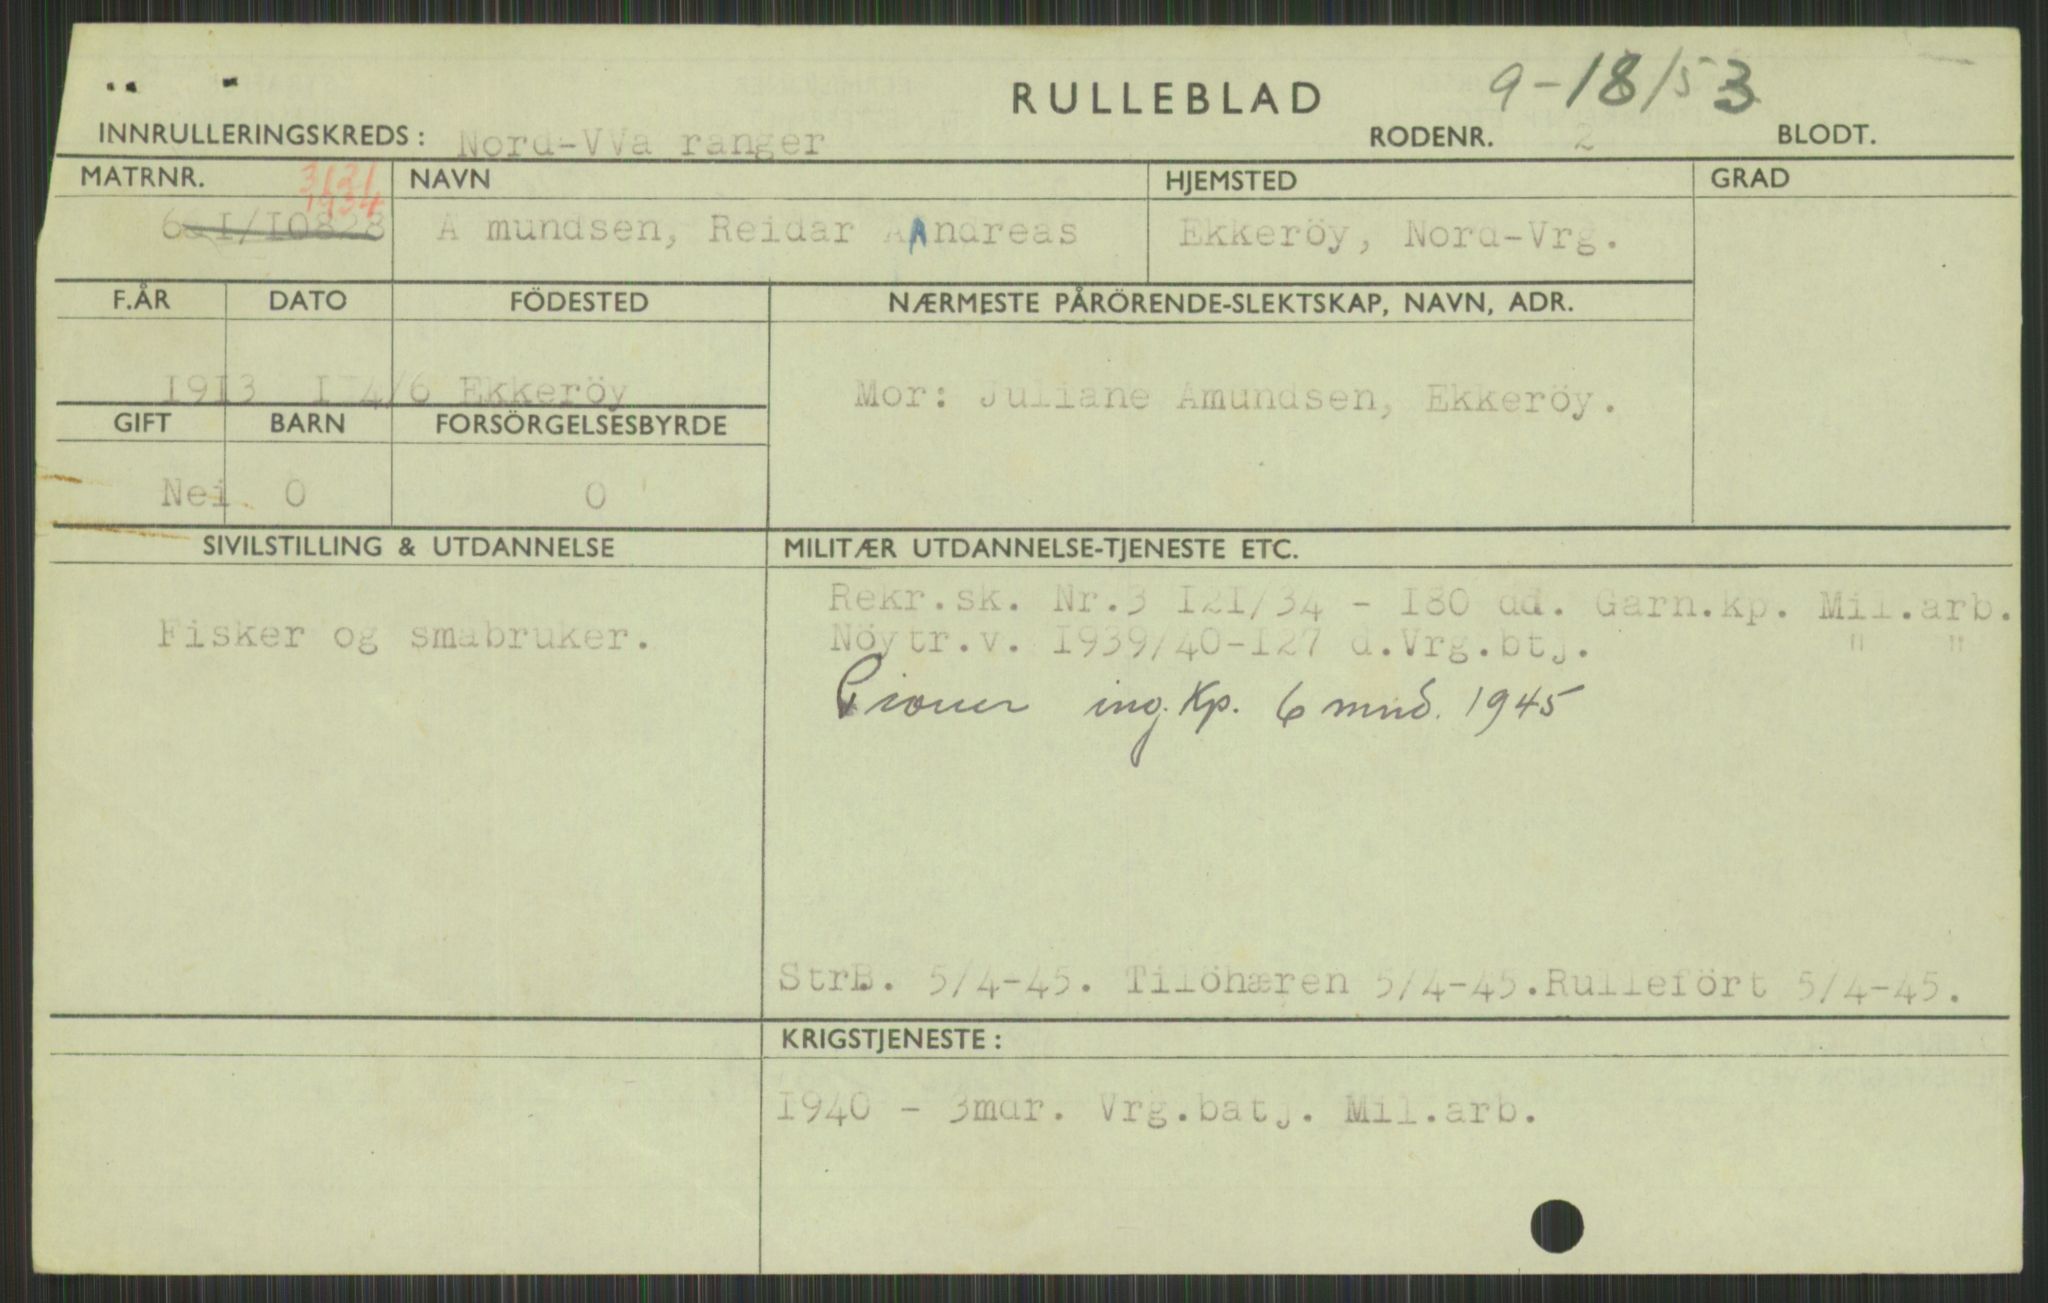 RULLEBLAD 9-18/53
INNRULLERINGSKREDS: Nord-VVa ranger RODENR. 2 BLODT.
MATRNR. 3121 1934 NAVN HJEMSTED GRAD
I/I0828 A mundsen, Reidar AAndreas Ekkeröy, Nord-Vrg.
F.ÅR DATO FÖDESTED NÆRMESTE PÅRÖRENDE-SLEKTSKAP, NAVN, ADR.
I9I3 I 4/6 Ekkeröy Mor: Juliane Amundsen, Ekkeröy.
GIFT BARN FORSÖRGELSESBYRDE
Nei 0 0
SIVILSTILLING & UTDANNELSE MILITÆR UTDANNELSE-TJENESTE ETC.
Rekr.sk. Nr.3 I2I/34 - I80 dd. Garn.kp. Mil.arb.
Fisker og smabruker. Nöytr.v. I939/40-I27 d.Vrg.btj. " "
Pioner ing. Kp. 6 mnd. 1945
StrB. 5/4-45. Tilöhæren 5/4-45.Rulleført 5/4-45.
KRIGSTJENESTE:
I940 - 3mdr. Vrg.batj. Mil.arb.